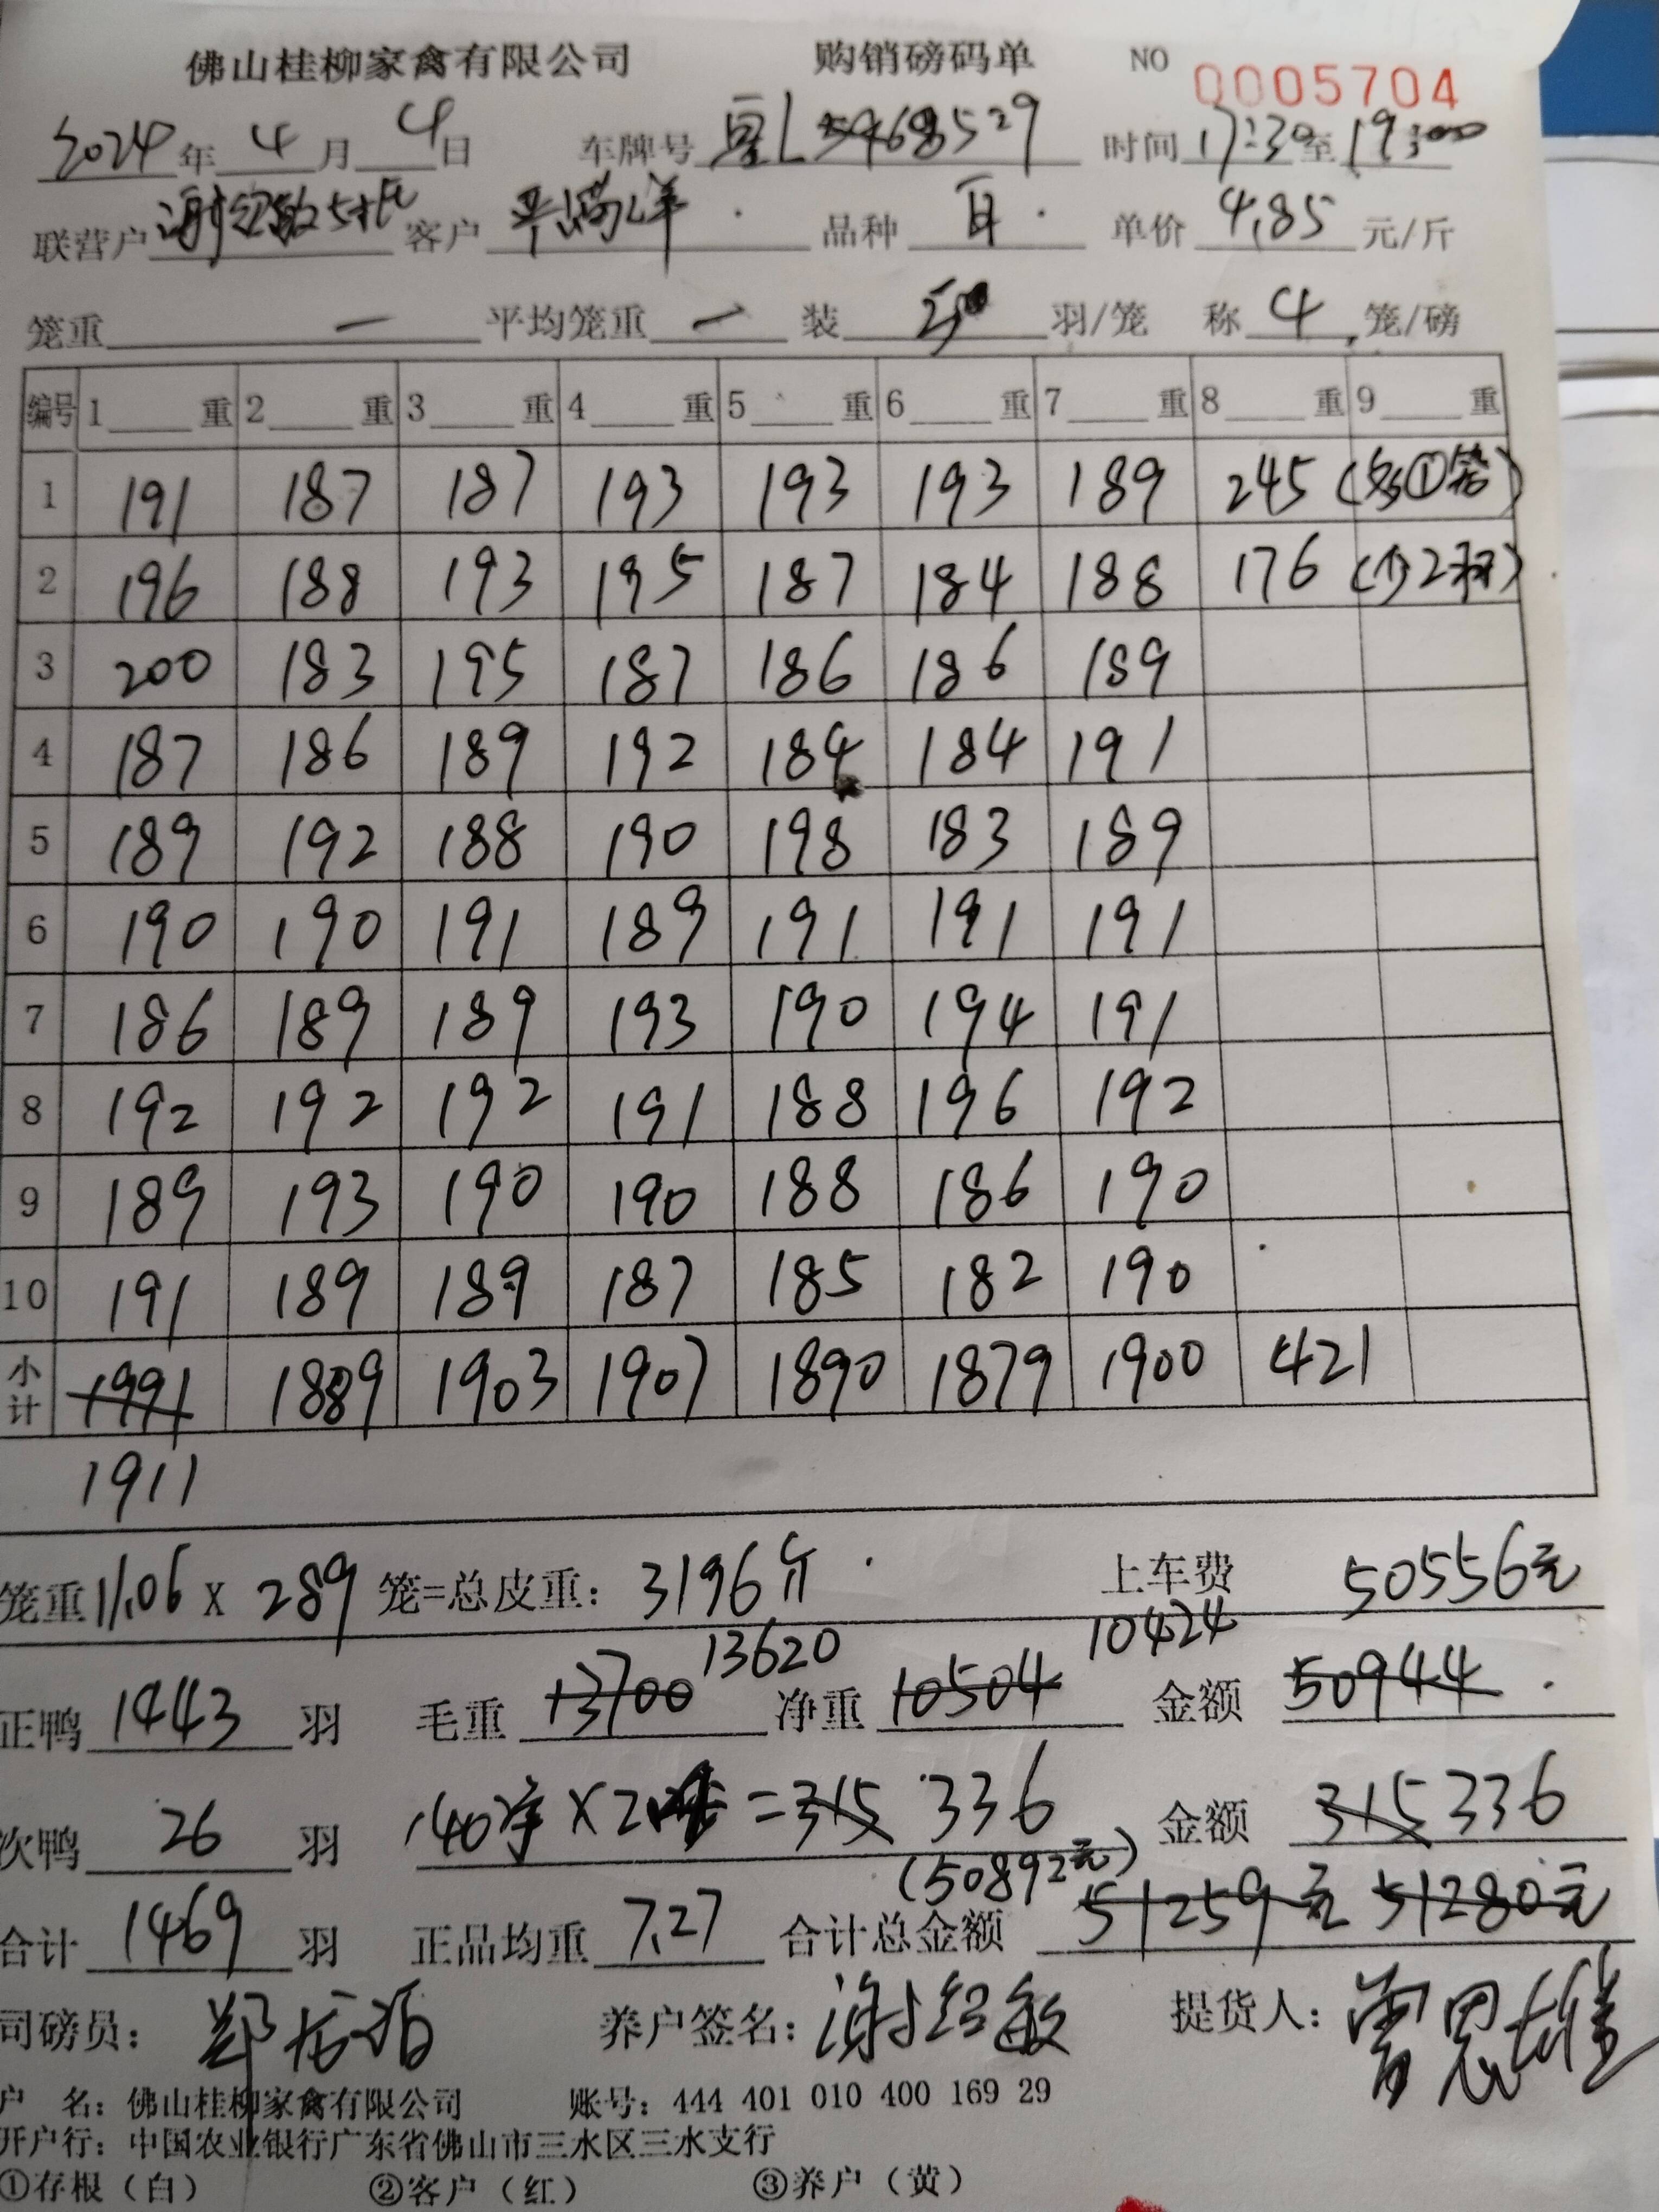 佛山桂柳家禽有限公司 购销磅码单 NO 0005704
2024年4月4日 车牌号 68529 时间 17:30至19:00
联营户 谢绍敏5批 客户 品种 单价 4.85 元/斤
笼重 一 平均笼重 一 装 羽/笼 称 4 笼/磅
编号 1 重 2 重 3 重 4 重 5 重 6 重 7 重 8 重 9 重
1 191 187 187 193 193 193 189 245 (多①笼)
2 196 188 193 195 187 184 188 176 (少2羽)
3 200 183 195 187 186 186 189
4 187 186 189 192 184 184 191
5 189 192 188 190 198 183 189
6 190 190 191 189 191 191 191
7 186 189 189 193 190 194 191
8 192 192 192 191 188 196 192
9 189 193 190 190 188 186 190
10 191 189 189 187 185 182 190
小计 1991 1889 1903 1907 1890 1879 1900 421
1911
笼重11.06 X 289 笼=总皮重: 3196斤 上车费 50556元
13620 10424
正鸭 1443 羽 毛重 13700 净重 10504 金额 50944
次鸭 26 羽 140 X 2.4 = 315 336 金额 315 336
(50892元)
合计 1469 羽 正品均重 7.27 合计总金额 51259元 51280元
司磅员: 养户签名: 谢绍敏 提货人: 曾思雄
户 名: 佛山桂柳家禽有限公司 账号: 444 401 010 400 169 29
开户行: 中国农业银行广东省佛山市三水区三水支行
①存根（白） ②客户（红） ③养户（黄）